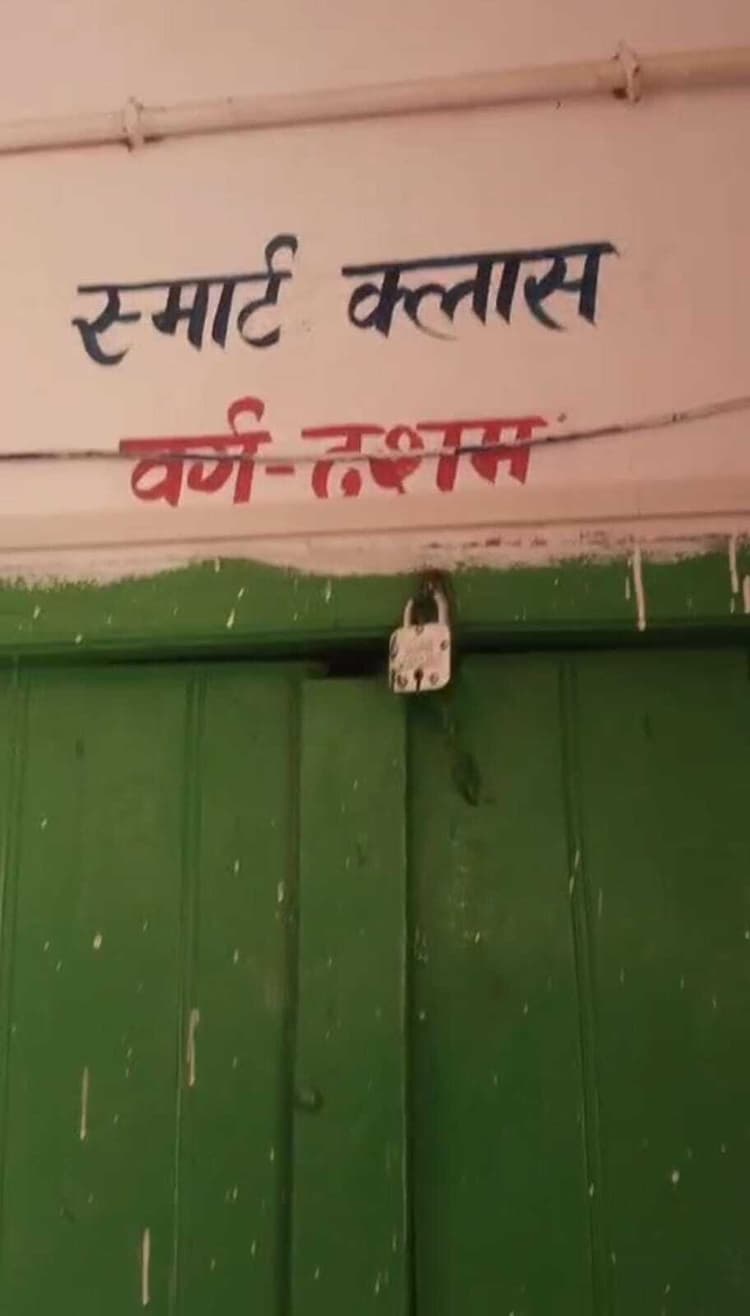 स्मार्ट क्लास
वर्ग-दशम